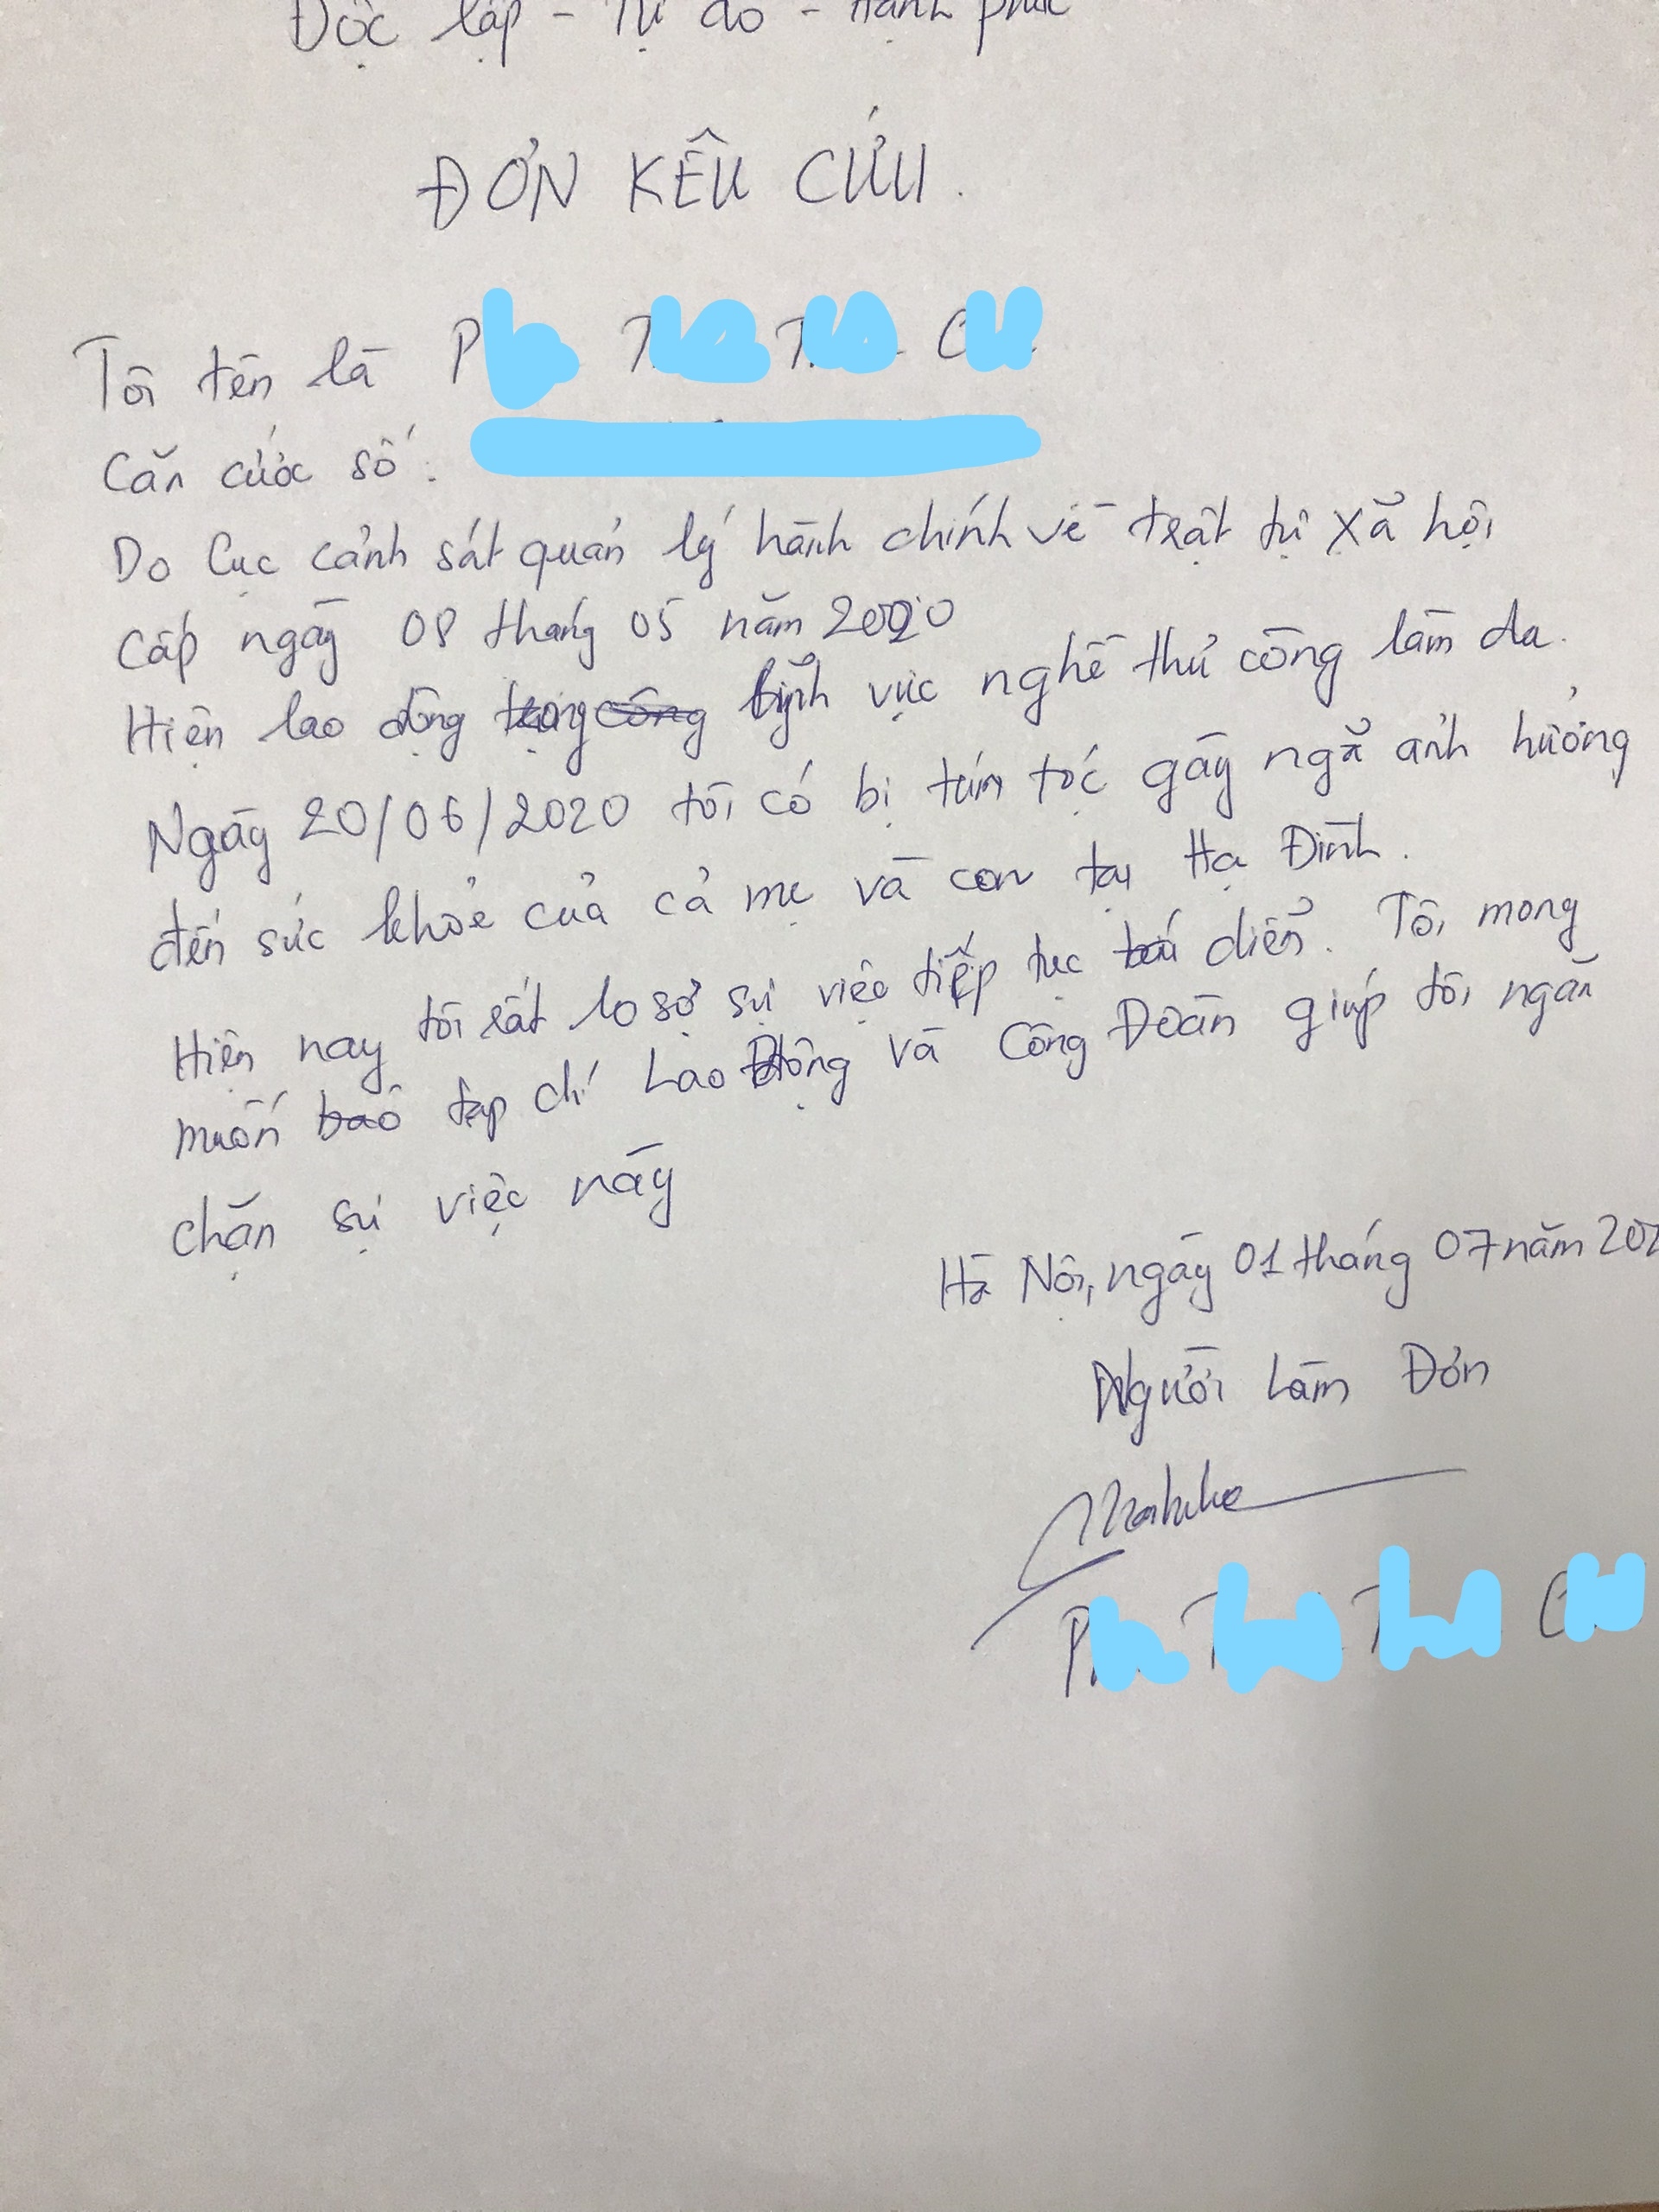 Độc lập - Tự do - Hạnh phúc
ĐƠN KÊU CỨU.
Tôi tên là P T T C
Căn cước số:
Do Cục cảnh sát quản lý hành chính về trật tự xã hội
Cấp ngày 08 tháng 05 năm 2020
Hiện lao động lĩnh vực nghề thủ công làm da.
Ngày 20/06/2020 tôi có bị túm tóc gây ngã ảnh hưởng
đến sức khỏe của cả mẹ và con tại Hạ Đình.
Hiện nay tôi rất lo sợ sự việc tiếp tục diễn. Tôi mong
muốn tạp chí Lao Động và Công Đoàn giúp tôi ngăn
chặn sự việc này
Hà Nội, ngày 01 tháng 07 năm 202
Người Làm Đơn
P T T C